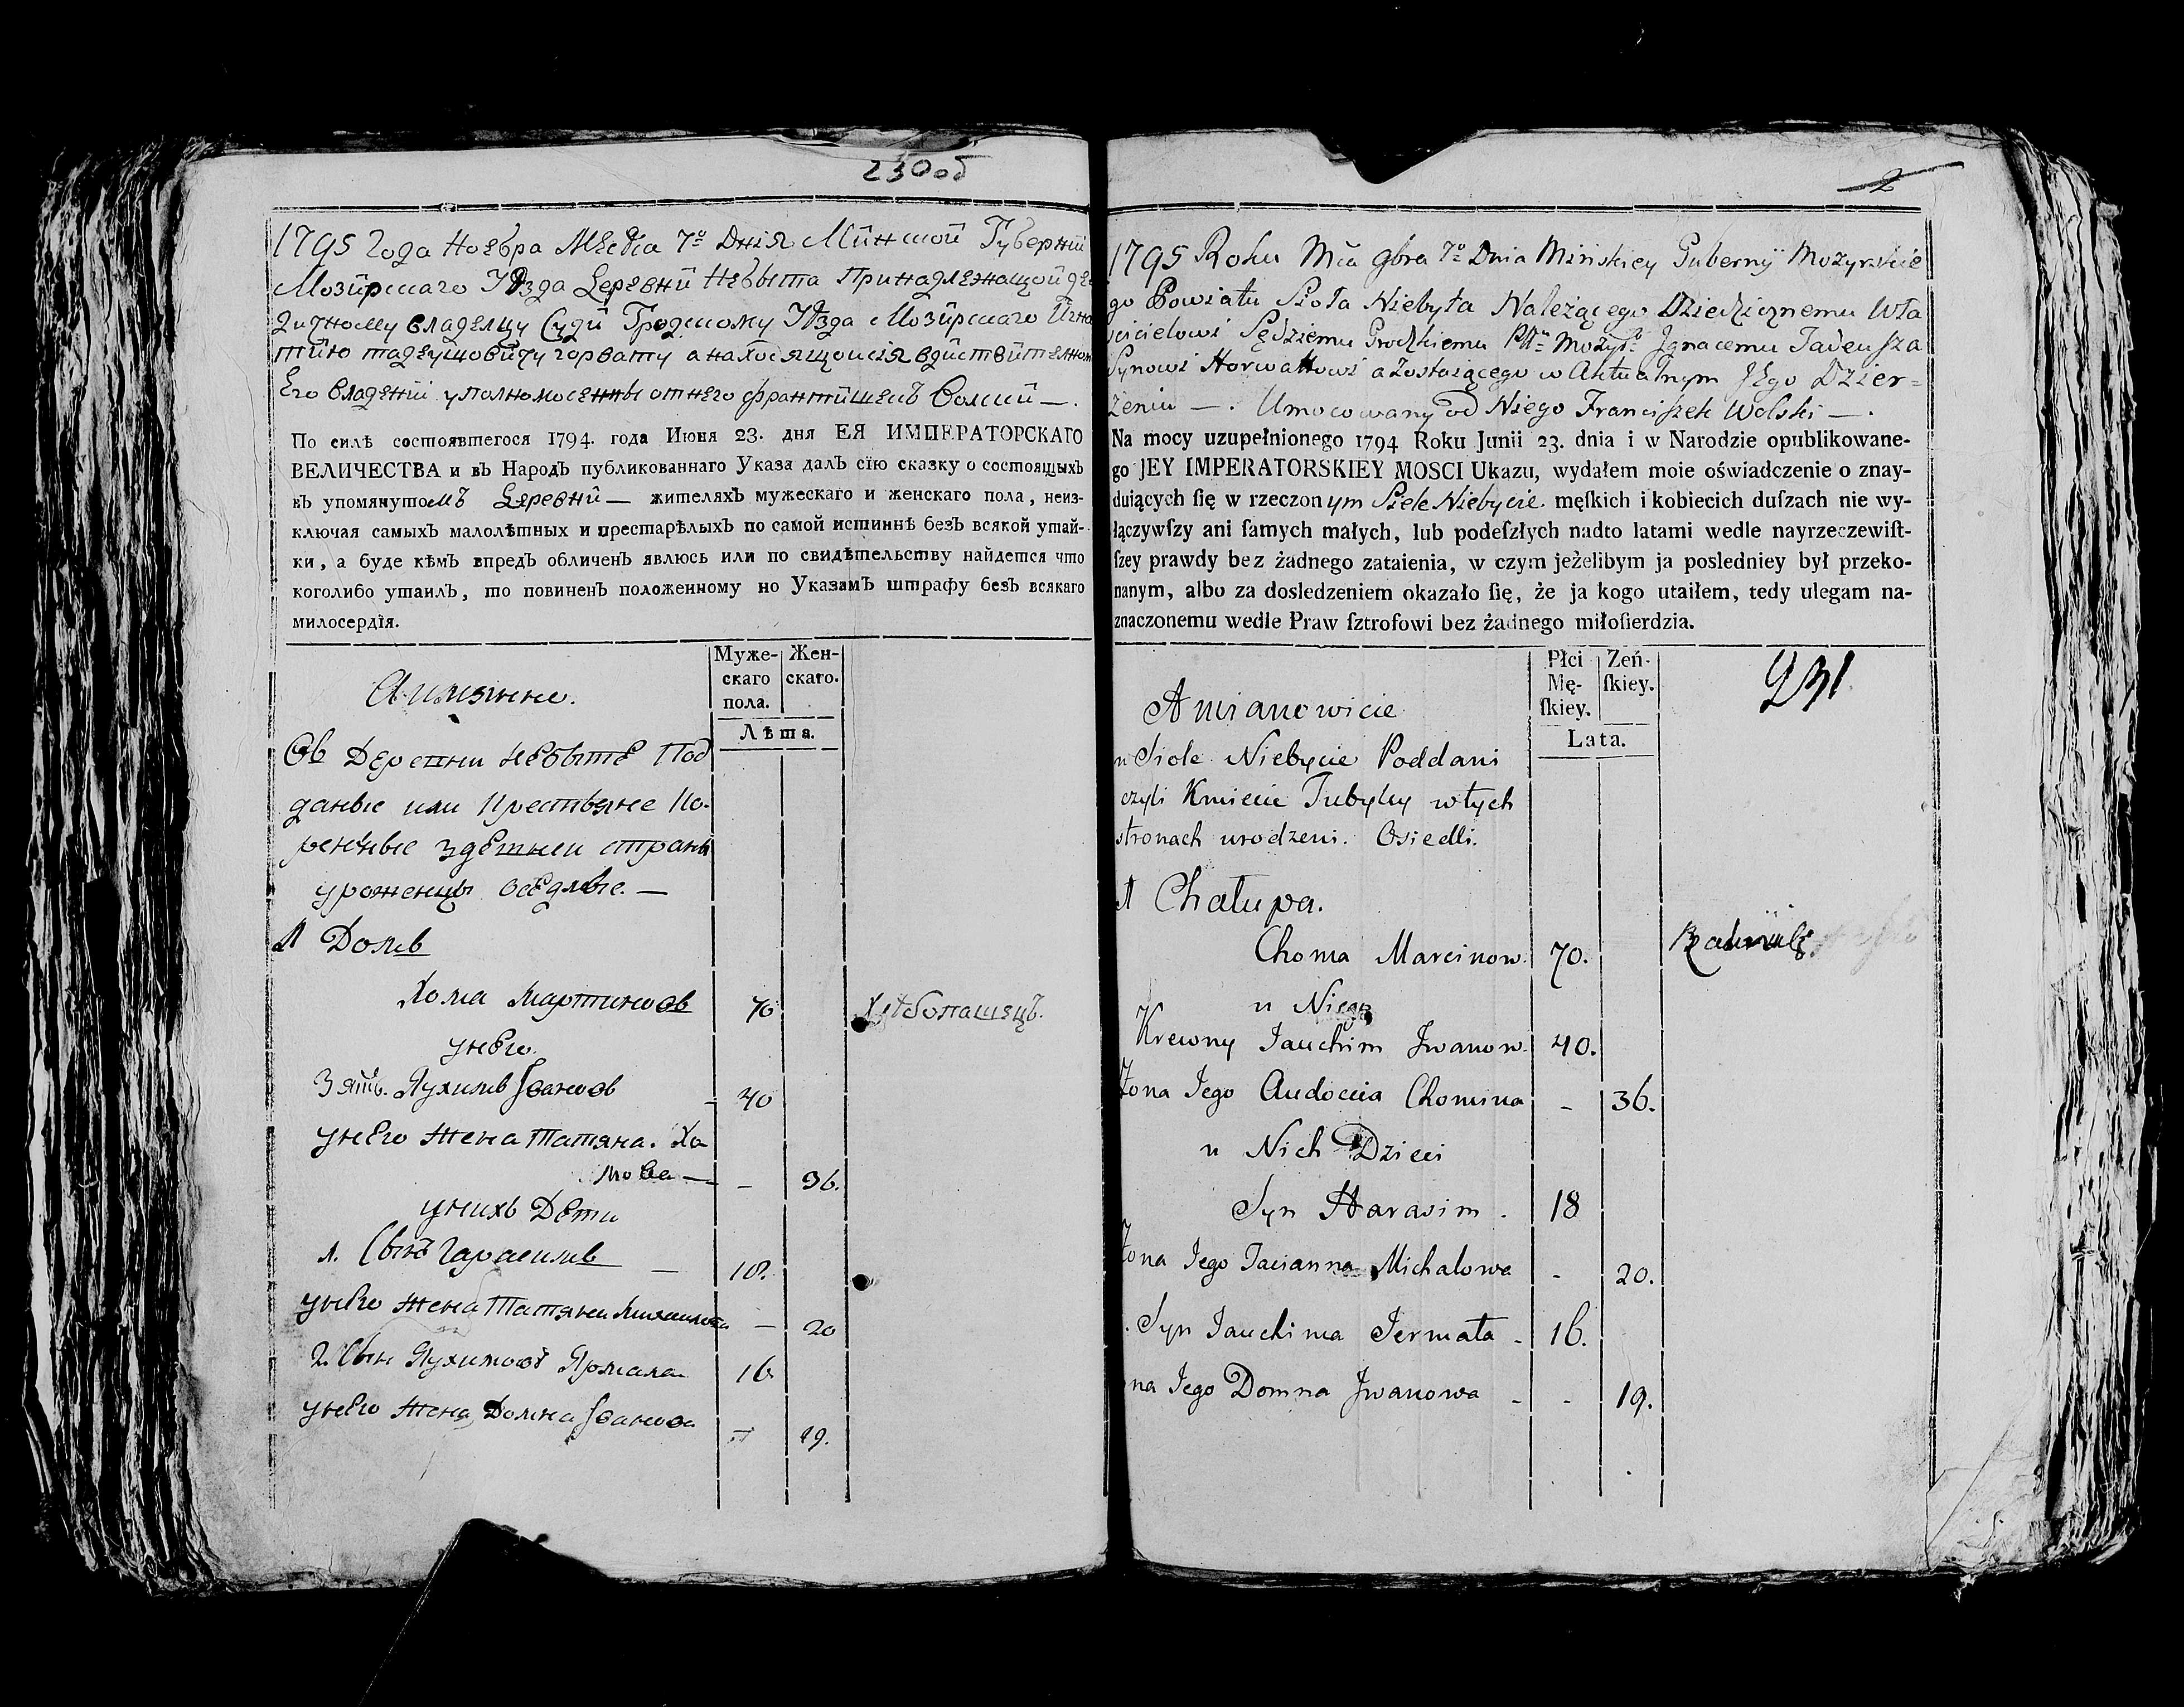 230об
1795 Года Ноебра Месеца 7º Дніѧ Минской Губерніи
Мозирскаго Уѣзда Деревни Небыта Принадлежащой де
дичному владелцу Суди Гродскому Уѣзда Мозирскаго Игна
тию тадеушовичу горвату а находящоисіѧ вдиствителном
Его владеніи уполномоченны отнего франтишекъ Волский —.
По силѣ состоявшегося 1794. года Июня 23. дня ЕЯ ИМПЕРАТОРСКАГО
ВЕЛИЧЕСТВА и въ Народъ публикованнаго Указа далъ сїю сказку о состоящыхъ
въ упомянутомъ Деревни — жителяхъ мужескаго и женскаго пола, неиз-
ключая самыхъ малолѣтныхъ и престарѣлыхъ по самой истиннѣ безъ всякой утай-
ки, а буде кѣмъ впредъ обличенъ явлюсь или по свидѣтельству найдется что
коголибо утаилъ, то повиненъ положенному но Указамъ штрафу безъ всякаго
милосердїя.
Муже-
скаго
пола.
Жен-
скаго.
Лѣта.
А имянно.
Въ Деревни Небытѣ Под
даные или Крестьяне Ко-
ренные здѣшней страны
уроженцы осѣдлые. —
1 Домъ
Хома Мартиновъ 70 Хлѣбопашецъ.
унѣго
Зять. Яухимъ Івановъ - 40
унѣго Жена Татяна. Хо
мова — - 36.
унихъ Дѣти
1. Сынъ Гарасимъ — 18.
унѣго жена Татяна Михаилова — 20
2. Сын Яухимовъ Ярмала 16
унѣго Жена Домна Іванова - 19.
2
1795 Roku Mca 9bra 7º Dnia Mińskiey Guberny Mozyrskie
go Powiatu Sioła Niebyta Należącego Dziedzicznemu Wła
ścicielowi Sędziemu Grodzkiemu Pttu Mozyr: Jgnacemu Tadeusza
Synowi Horwattowi a zostaiącego w Aktualnym Jego Dzier=
żeniu —. Umocowany od Niego Franciszek Wolski —.
Na mocy uzupełnionego 1794 Roku Junii 23. dnia i w Narodzie opublikowane-
go JEY IMPERATORSKIEY MOSCI Ukazu, wydałem moie oświadczenie o znay-
duiących ſię w rzeczonym Siele Niebycie męſkich i kobiecich duſzach nie wy-
łączywſzy ani ſamych małych, lub podeſzłych nadto latami wedle nayrzeczewiſt-
ſzey prawdy bez żadnego zataienia, w czym jeżelibym ja posledniey był przeko-
nanym, albo za dosledzeniem okazało ſię, że ja kogo utaiłem, tedy ulegam na-
znaczonemu wedle Praw ſztrofowi bez żadnego miłoſierdzia.
Płci
Mę-
ſkiey.
Zeń-
ſkiey.
Lata.
231
A mianowicie
w Siole Niebycie Poddani
czyli Kmiecie Tubylcy w tych
stronach urodzeni. Osiedli.
1 Chałupa.
Choma Marcinow. 70.
u Niego
Krewny Jauchim Jwanow. 40.
Żona Jego Audocia Chomina - 36.
u Nich Dzieci
Syn Harasim. 18
Żona Jego Tacianna Michałowa - 20.
. Syn Jauchima Jermała - 16.
na Jego Domna Jwanowa - - 19.